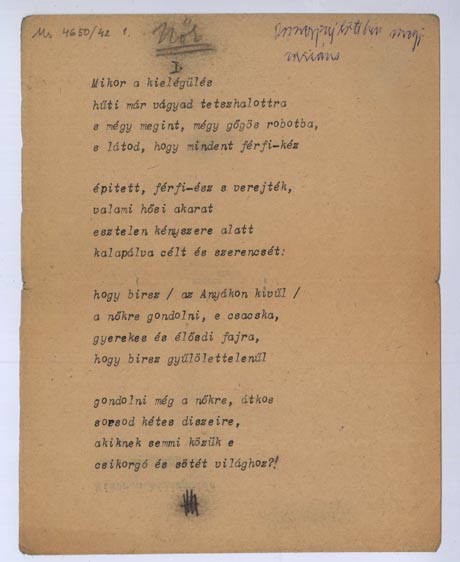 Ms 4650/42 1.
Nők
I.
Mikor a kielégülés
hűti már vágyad tetszhalottra
s mégy megint, mégy gőgös robotba,
s látod, hogy mindent férfi-kéz
épitett, férfi-ész s verejték,
valami hősi akarat
esztelen kényszere alatt
kalapálva célt és szerencsét:
hogy birsz / az Anyákon kivűl /
a nőkre gondolni, e csacska,
gyerekes és élősdi fajra,
hogy birsz gyűlölettelenűl
gondolni még a nőkre, átkos
sorsod kétes diszeire,
akiknek semmi közűk e
csikorgó és sötét világhoz?!